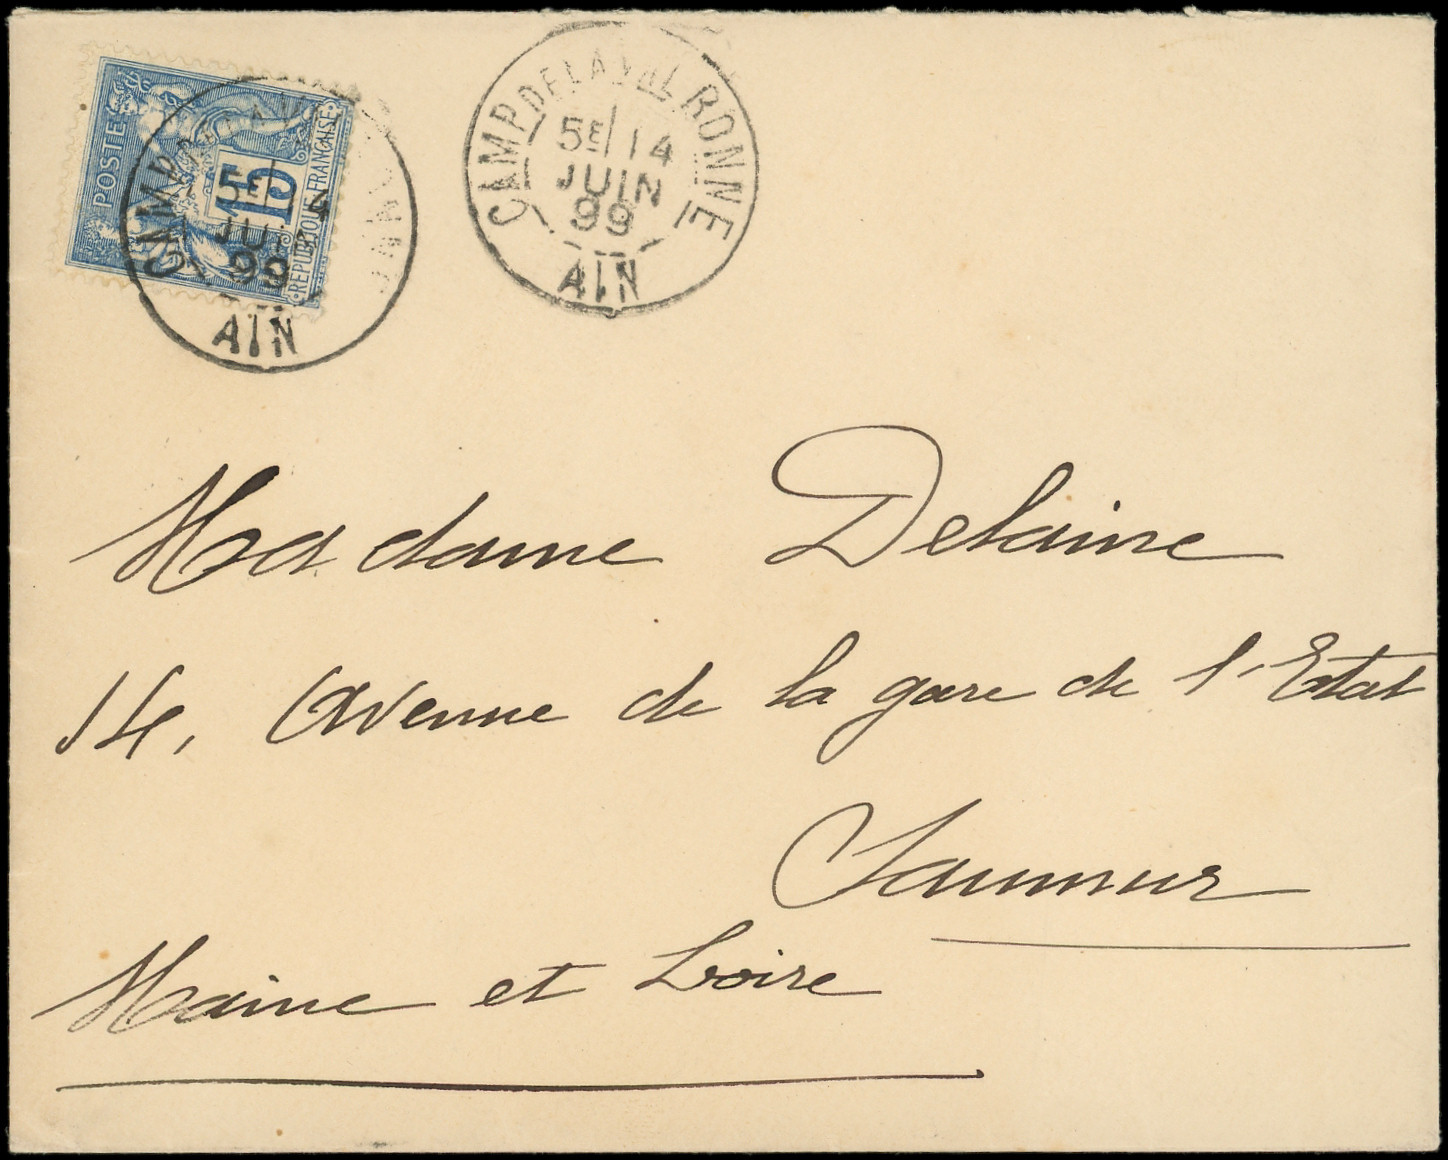 POSTE
15
REPUBLIQUE FRANÇAISE
CAMP
5E
JUIN
99
AIN
CAMP DE LA VALBONNE
5E 14
JUIN
99
AIN
Madame Delaine
14, Avenue de la gare de l'Etat
Saumur
Maine et Loire